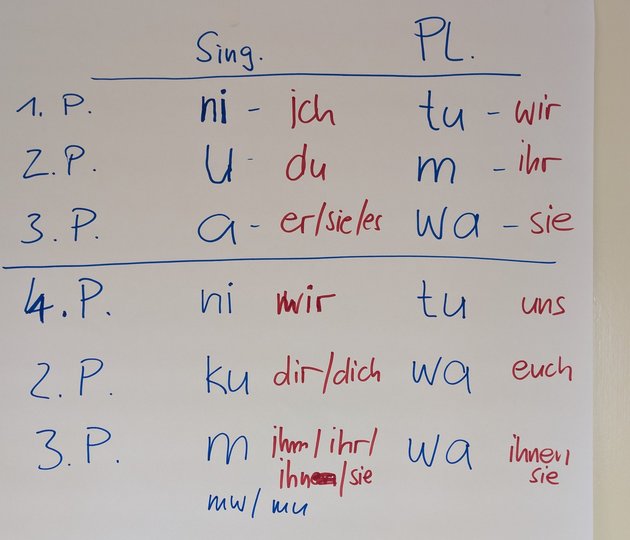 Sing. PL.
1. P. ni - ich tu - wir
2. P. u - du m - ihr
3. P. a - er/sie/es wa - sie
4. P. ni mir tu uns
2. P. ku dir/dich wa euch
3. P. m ihm/ihr/ wa ihnen,
ihn/sie sie
mw/mu